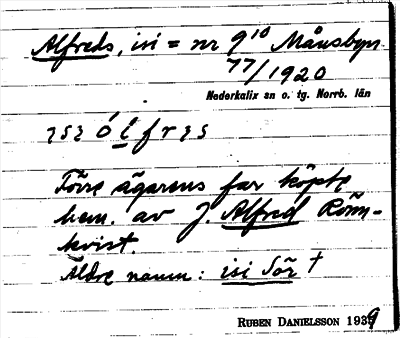 Alfreds, isi = nr 9¹⁰ Månsbyn
77/1920
Nederkalix sn o. tg. Norrb. län
ólfrɜs
Förre ägarens far köpte
hem. av J. Alfred Rönn-
kvist.
Äldre namn: isi Sör †
RUBEN DANIELSSON 1939